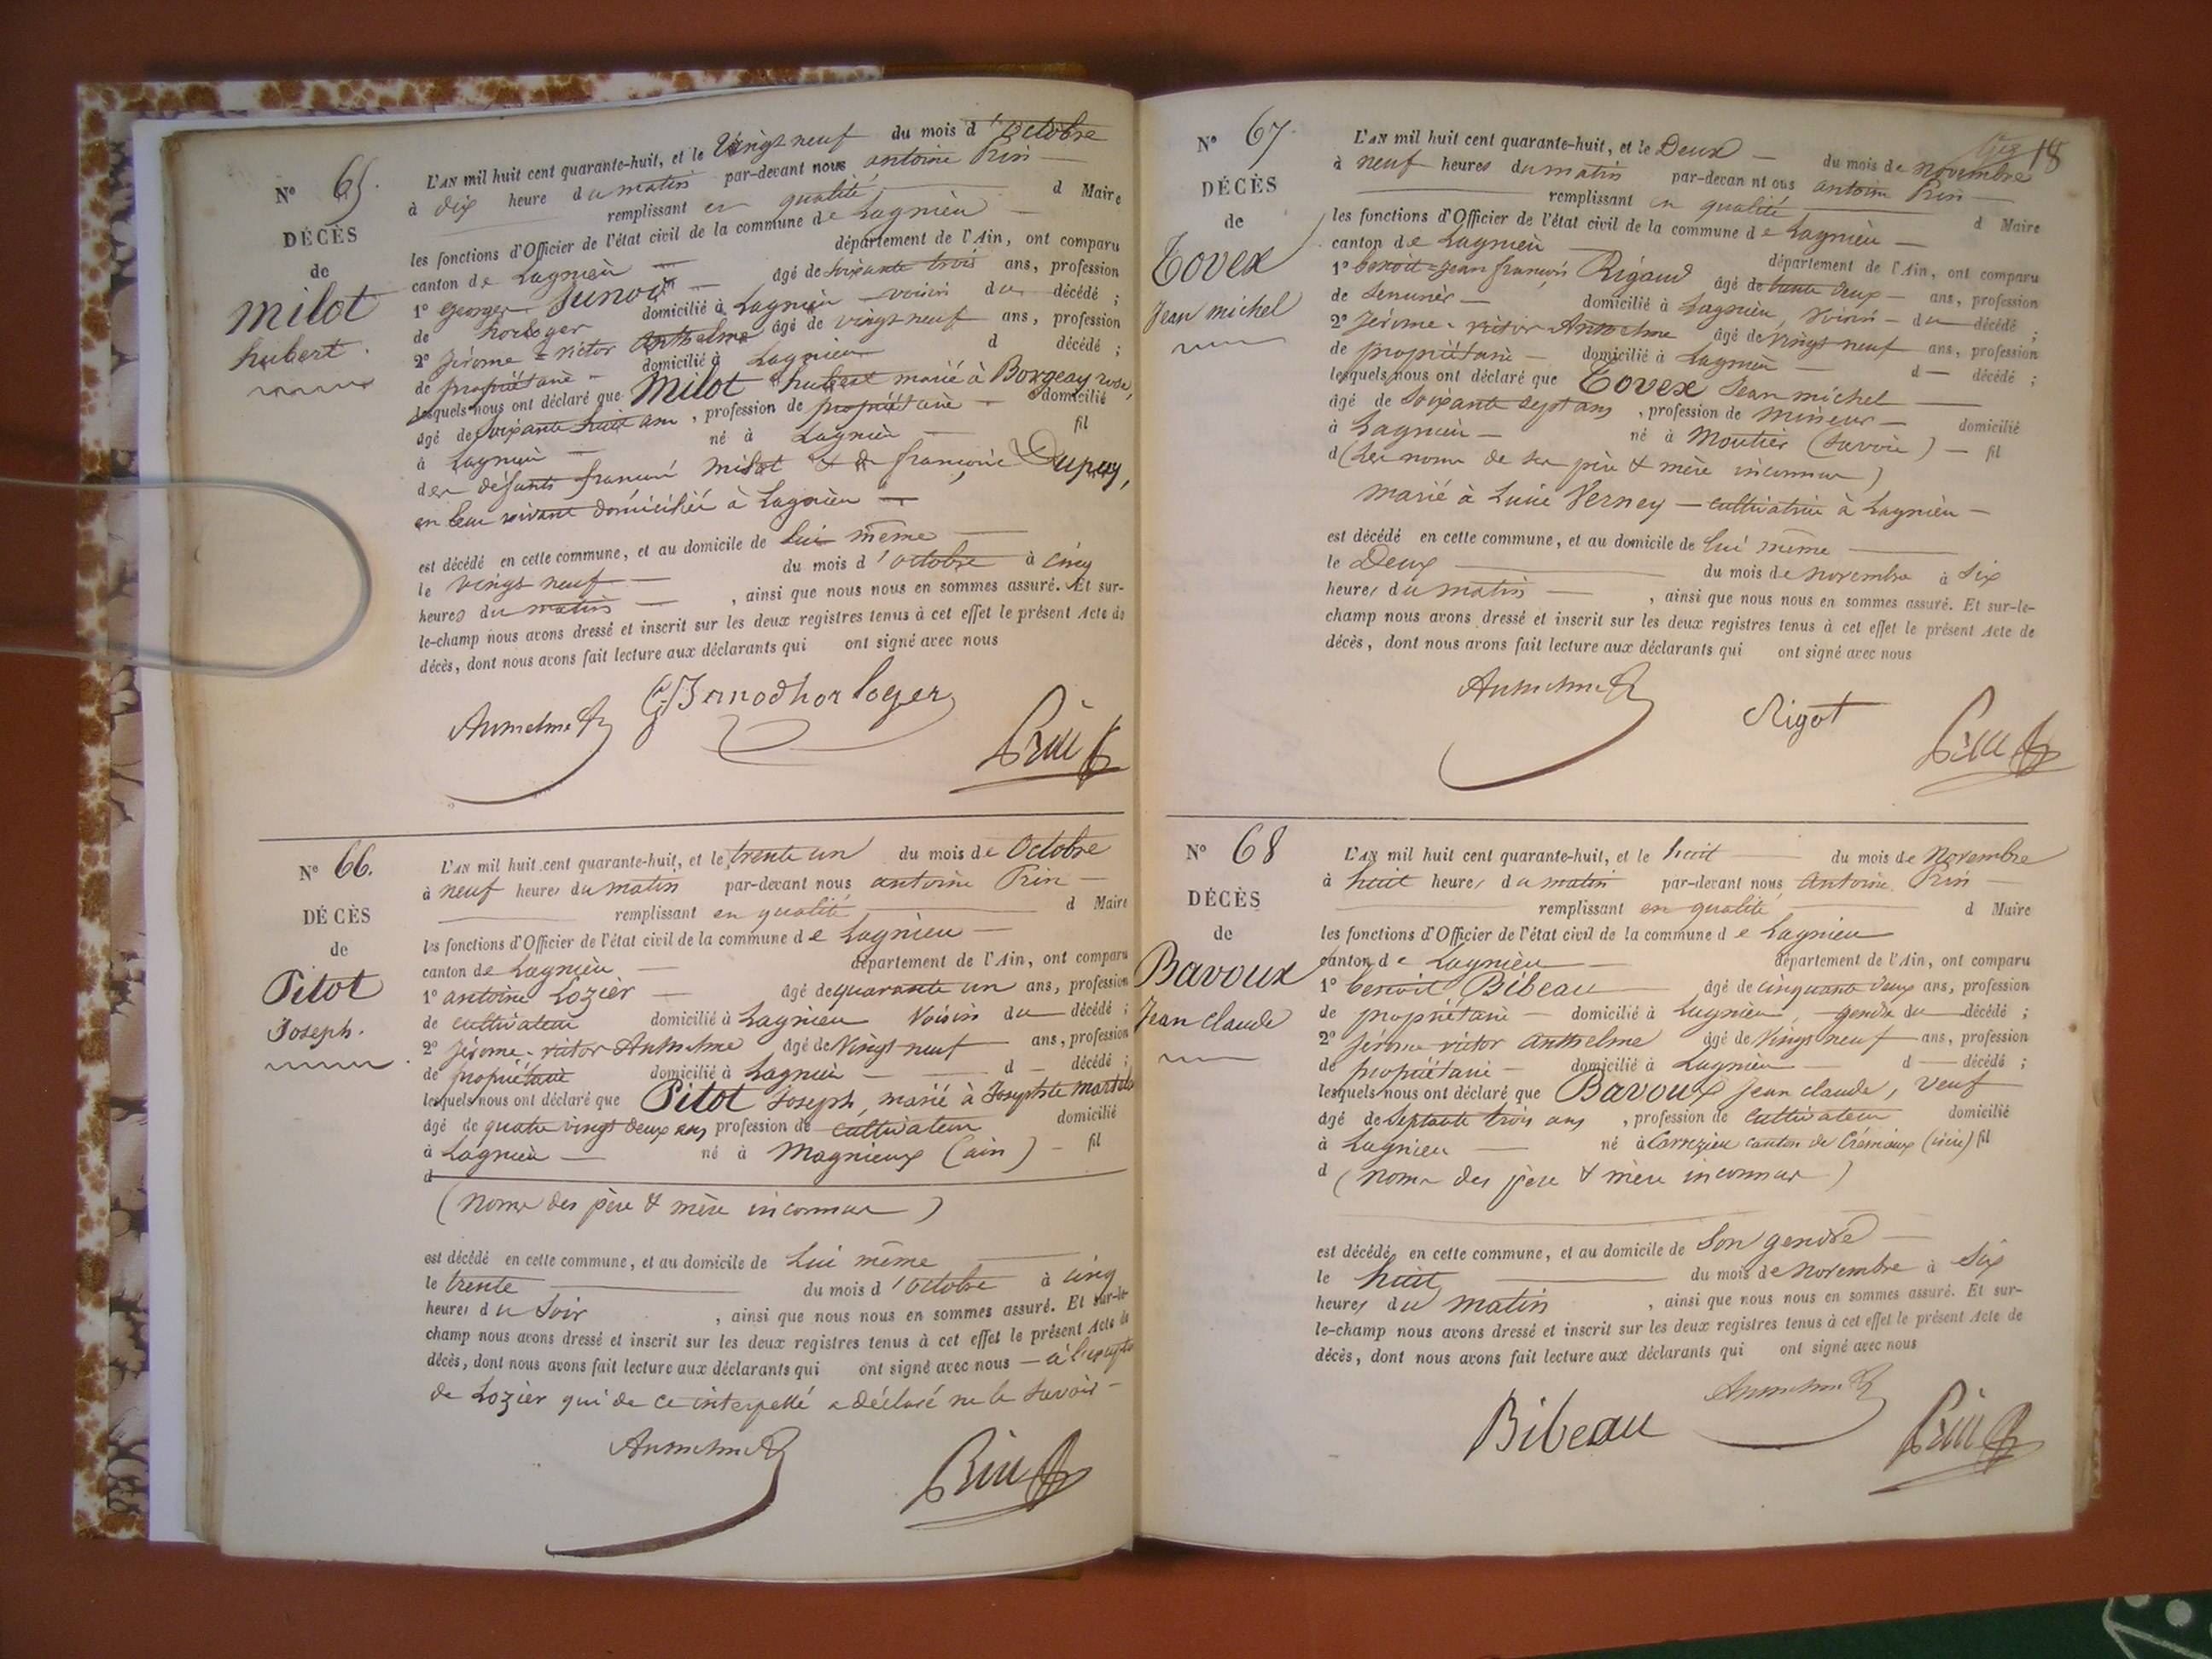 N° 65.
DÉCÈS
de
Milot
hubert.
L'AN mil huit cent quarante-huit, et le Vingt neuf du mois d'octobre
à dix heure du matin par-devant nous antoine Prin
remplissant en qualité d Maire
les fonctions d'Officier de l'état civil de la commune de Lagnieu
canton de Lagnieu département de l'Ain, ont comparu
1° georges Junod âgé de soixante trois ans, profession
de horloger domicilié à Lagnieu voisin du décédé ;
2° Jérome = victor Anthelme âgé de vingt neuf ans, profession
de propriétaire domicilié à Lagnieu d décédé ;
lesquels nous ont déclaré que Milot hubert marié à Borgeay rose,
âgé de soixante huit ans, profession de propriétaire domicilié
à Lagnieu né à Lagnieu fil
des défunts francois milot & de françoise Dupuy,
en leur vivant domiciliés à Lagnieu
est décédé en cette commune, et au domicile de lui même
le vingt neuf du mois d'octobre à cinq
heures du matin, ainsi que nous nous en sommes assuré. Et sur-
le-champ nous avons dressé et inscrit sur les deux registres tenus à cet effet le présent Acte de
décès, dont nous avons fait lecture aux déclarants qui ont signé avec nous
G Junod horloger
Anthelme
Prin
N° 66.
DÉCÈS
de
Pitot
Joseph.
L'AN mil huit cent quarante-huit, et le trente un du mois de Octobre
à neuf heures du matin par-devant nous antoine Prin
remplissant en qualité d Maire
les fonctions d'Officier de l'état civil de la commune de Lagnieu
canton de Lagnieu département de l'Ain, ont comparu
1° antoine Lozier âgé de quarante un ans, profession
de cultivateur domicilié à Lagnieu Voisin du décédé ;
2° Jérome = victor Anthelme âgé de Vingt neuf ans, profession
de propriétaire domicilié à Lagnieu d décédé ;
lesquels nous ont déclaré que Pitot Joseph, marié à Josephte
âgé de quatre vingt deux ans profession de cultivateur domicilié
à Lagnieu né à Magnieux (ain) fil
d
(Noms des père & mère inconnus)
est décédé en cette commune, et au domicile de Lui même
le trente du mois d'octobre à cinq
heures du Soir, ainsi que nous nous en sommes assuré. Et sur-le-
champ nous avons dressé et inscrit sur les deux registres tenus à cet effet le présent Acte de
décès, dont nous avons fait lecture aux déclarants qui ont signé avec nous — à l'exception
de Lozier qui de ce interpellé a déclaré ne le savoir
Anthelme
Prin
18
N° 67.
DÉCÈS
de
Tovex
Jean michel
L'AN mil huit cent quarante-huit, et le Deux du mois de novembre
à neuf heures du matin par-devan nt ous antoine Prin
remplissant en qualité d Maire
les fonctions d'Officier de l'état civil de la commune de Lagnieu
canton de Lagnieu département de l'Ain, ont comparu
1° benoit = Jean françois Rigaud âgé de trente deux ans, profession
de Serrurier domicilié à Lagnieu, Voisin du décédé ;
2° Jérome = victor Anthelme âgé de Vingt neuf ans, profession
de propriétaire domicilié à Lagnieu d décédé ;
lesquels nous ont déclaré que Tovex Jean michel
âgé de Soixante sept ans, profession de Mineur domicilié
à Lagnieu né à Moutier (Savoie) fil
d (Les noms de ses père & mère inconnus)
marié à Lucie Verney — cultivatrice à Lagnieu
est décédé en cette commune, et au domicile de lui même
le Deux du mois de novembre à Six
heures du matin, ainsi que nous nous en sommes assuré. Et sur-le-
champ nous avons dressé et inscrit sur les deux registres tenus à cet effet le présent Acte de
décès, dont nous avons fait lecture aux déclarants qui ont signé avec nous
Anthelme
Rigot
Prin
N° 68
DÉCÈS
de
Bavoux
Jean claude
L'AN mil huit cent quarante-huit, et le huit du mois de Novembre
à huit heures du matin par-devant nous Antoine Prin
remplissant en qualité d Maire
les fonctions d'Officier de l'état civil de la commune de Lagnieu
canton de Lagnieu département de l'Ain, ont comparu
1° benoit Bibeau âgé de cinquante deux ans, profession
de propriétaire domicilié à Lagnieu, gendre du décédé ;
2° Jérome victor Anthelme âgé de Vingt neuf ans, profession
de propriétaire domicilié à Lagnieu d décédé ;
lesquels nous ont déclaré que Bavoux Jean claude, veuf
âgé de Septante trois ans, profession de cultivateur domicilié
à Lagnieu né à canton de Crémieux (isère) fil
d (Noms des père & mère inconnus)
est décédé en cette commune, et au domicile de Son gendre
le huit du mois de novembre à Six
heures du matin, ainsi que nous nous en sommes assuré. Et sur-
le-champ nous avons dressé et inscrit sur les deux registres tenus à cet effet le présent Acte de
décès, dont nous avons fait lecture aux déclarants qui ont signé avec nous
Anthelme
Bibeau
Prin